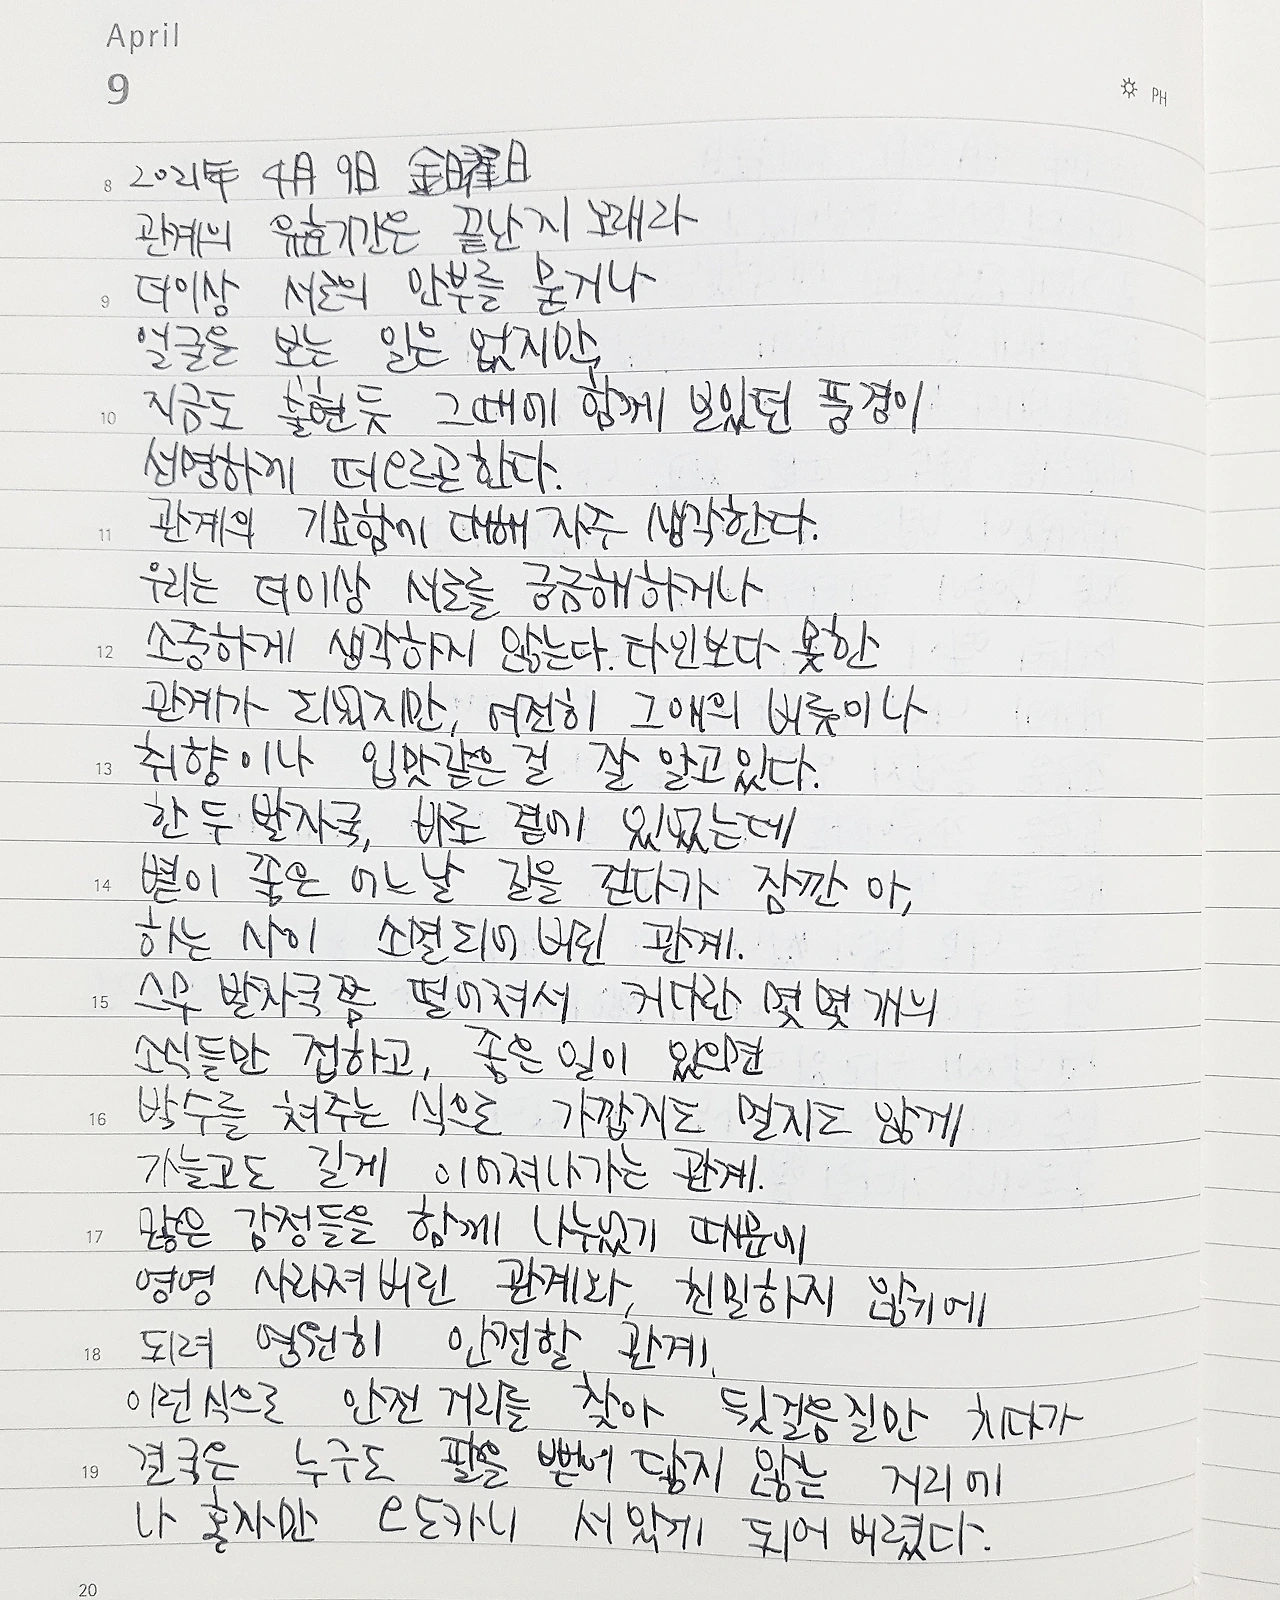 April
9
PH
8 2021年 4月 9日 金曜日
관계의 유효기간은 끝난지 오래라
9 더이상 서로의 안부를 묻거나
얼굴을 보는 일은 없지만,
10 지금도 불현듯 그때에 함께 보았던 풍경이
선명하게 떠오르곤한다.
11 관계의 기묘함에 대해 자주 생각한다.
우리는 더이상 서로를 궁금해하거나
12 소중하게 생각하지 않는다. 타인보다 못한
관계가 되었지만, 여전히 그애의 버릇이나
13 취향이나 입맛같은걸 잘 알고있다.
한두 발자국, 바로 곁에 있었는데
14 볕이 좋은 어느날 길을 걷다가 잠깐 아,
하는 사이 소멸되어 버린 관계.
15 스무 발자국쯤 떨어져서 커다란 몇몇개의
소식들만 접하고, 좋은일이 있으면
16 박수를 쳐주는 식으로 가깝지도 멀지도 않게
가늘고도 길게 이어져나가는 관계.
17 많은 감정들을 함께 나누었기 때문에
영영 사라져버린 관계와, 친밀하지 않기에
18 되려 영원히 안전할 관계.
이런식으로 안전거리를 찾아 뒷걸음질만 치다가
19 결국은 누구도 팔을 뻗어 닿지 않는 거리에
나 혼자만 오도카니 서있게 되어버렸다.
20